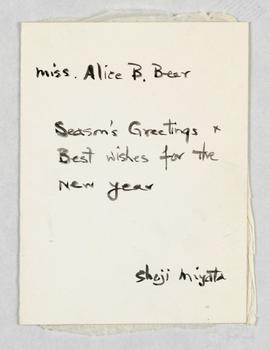 miss. Alice B. Beer
Season's Greetings +
Best wishes for the
new year
Shoji Miyata